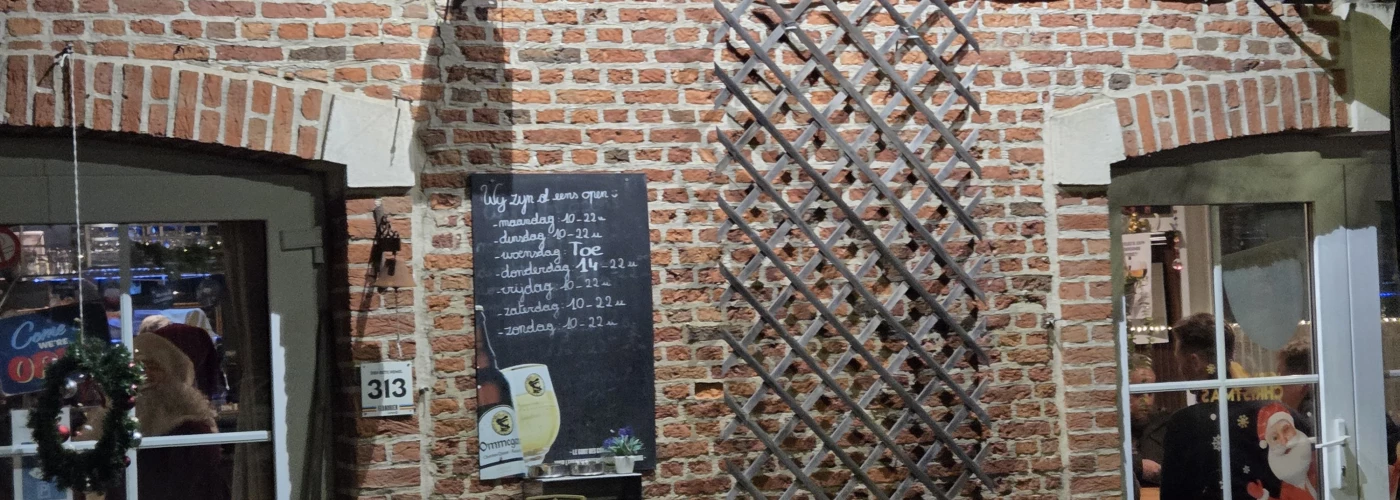 Wij zijn al eens open
- maandag 10-22 u
- dinsdag 10-22 u
- woensdag: Toe
- donderdag 14-22 u
- vrijdag 10-22 u
- zaterdag: 10-22 u
- zondag 10-22 u
Ommega
313
Come
WE'RE
CHRISTMAS